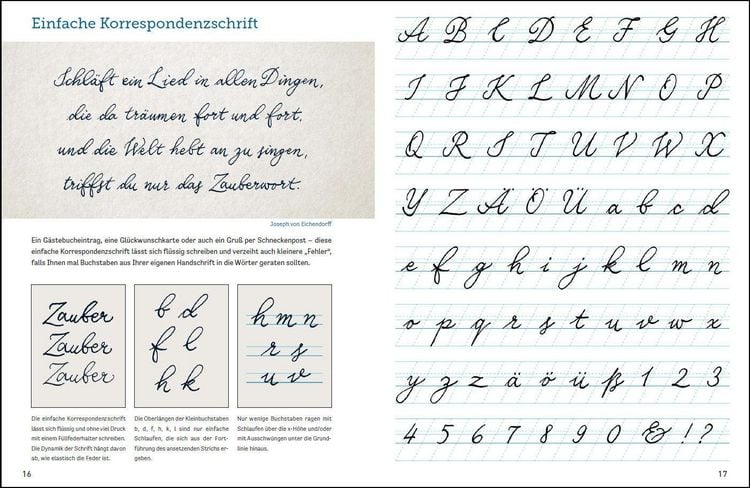 Einfache Korrespondenzschrift
Schläft ein Lied in allen Dingen,
die da träumen fort und fort,
und die Welt hebt an zu singen,
triffst du nur das Zauberwort.
Joseph von Eichendorff
Ein Gästebucheintrag, eine Glückwunschkarte oder auch ein Gruß per Schneckenpost – diese
einfache Korrespondenzschrift lässt sich flüssig schreiben und verzeiht auch kleinere „Fehler“,
falls Ihnen mal Buchstaben aus Ihrer eigenen Handschrift in die Wörter geraten sollten.
Zauber
Zauber
Zauber
b d
f l
h k
h m n
r s
u v
Die einfache Korrespondenzschrift
lässt sich flüssig und ohne viel Druck
mit einem Füllfederhalter schreiben.
Die Dynamik der Schrift hängt davon
ab, wie elastisch die Feder ist.
Die Oberlängen der Kleinbuchstaben
b, d, f, h, k, l sind nur einfache
Schlaufen, die sich aus der Fort-
führung des ansetzenden Strichs er-
geben.
Nur wenige Buchstaben ragen mit
Schlaufen über die x-Höhe und/oder
mit Ausschwüngen unter die Grund-
linie hinaus.
16
A B C D E F G H
I J K L M N O P
Q R S T U V W X
Y Z Ä Ö Ü a b c d
e f g h i j k l m n
o p q r s t u v w x
y z z ä ö ü ß 1 2 3
4 5 6 7 8 9 0 & ! ?
17